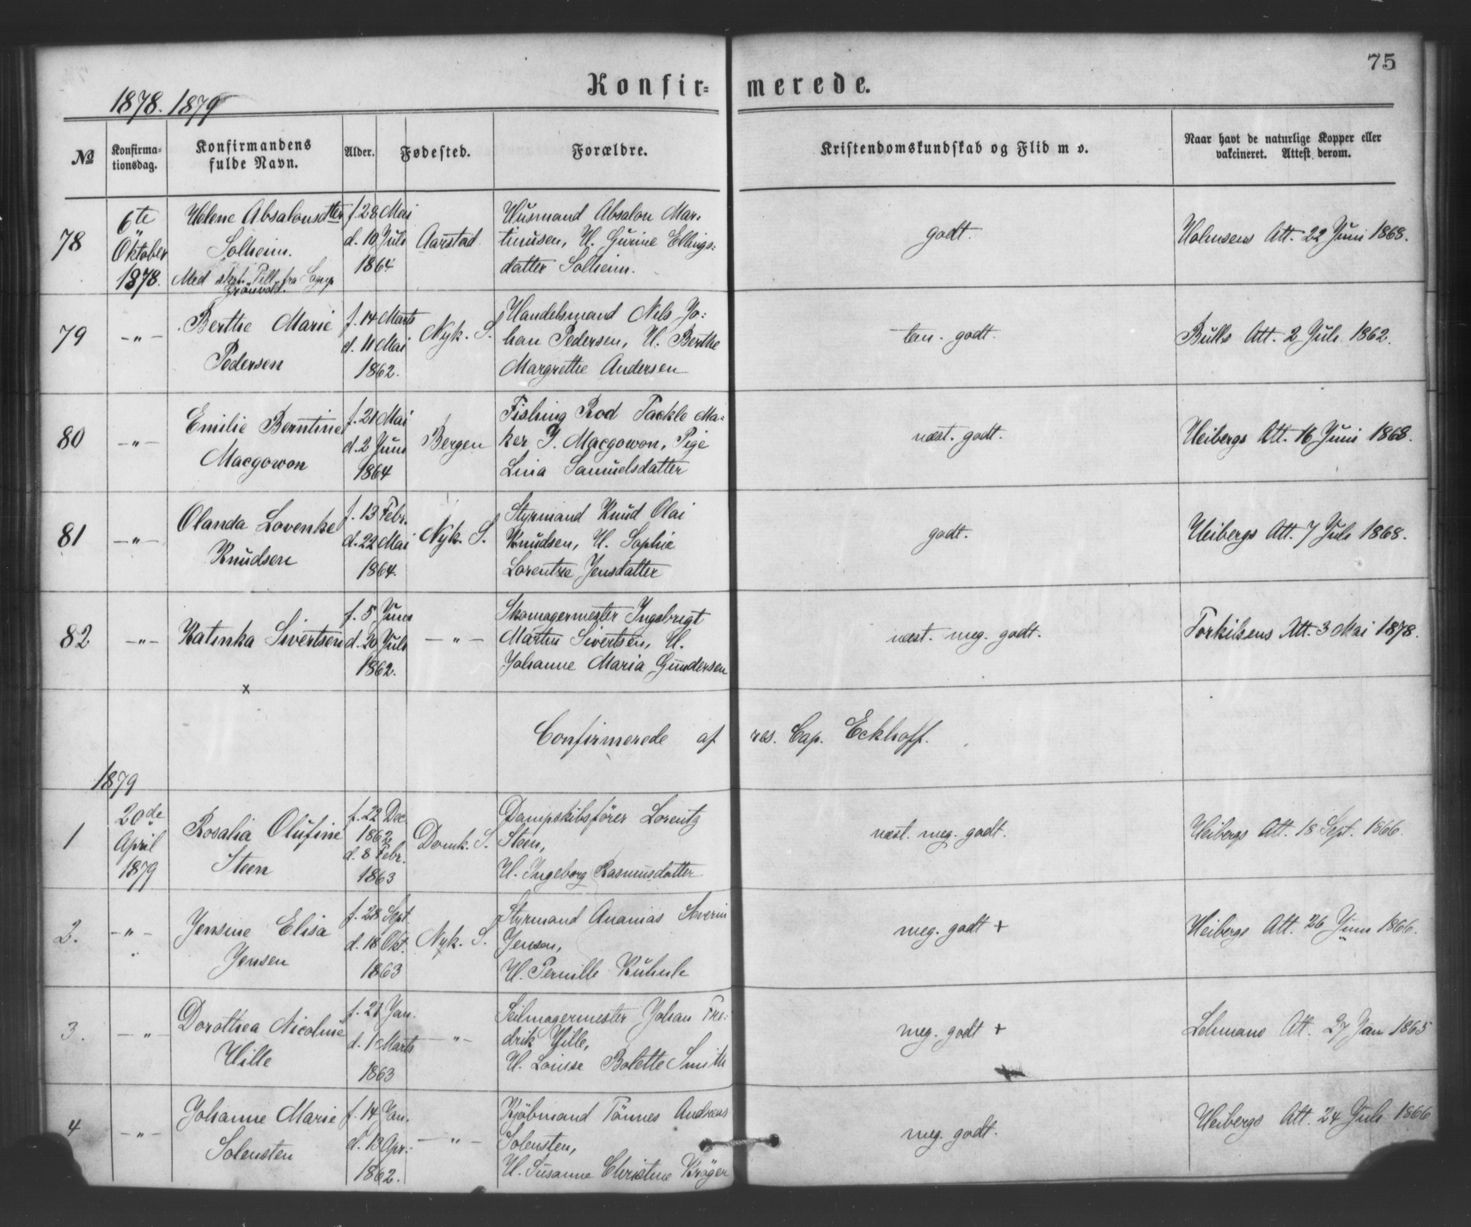 75
Konfirmerede.
1878. 1879
№
Konfirmationsdag.
Konfirmandens fulde Navn.
Alder.
Fødested.
Forældre.
Kristendomskundskab og Flid m v.
Naar havt de naturlige Kopper eller vakcineret. Attest derom.
78
6te Oktober 1878.
Helene Absalonsdtter
Solheim.
Med skr. Till. fra Sogp
f. 28 Mai
d. 10 Juli
1864
Aarstad
Husmand Absalon Mar-
tinusen, H. Gurine Ellings-
datter Solheim.
godt.
Holmsens Att. 22 Juni 1868.
79
-"-
Berthe Marie
Pedersen
f. 14 Marts
d. 11 Mai
1862.
Nyk. S.
Handelsmand Nils Jo-
han Pedersen, H. Berthe
Margrethe Andersen
tem. godt.
Bulls Att. 2 Juli 1862.
80
-"-
Emilie Berntine
Macgowon
f. 21 Mai
d. 2 Juni
1864
Bergen
Fishing Rod Tackle Ma-
ker J. Macgowon, Pige
Lina Samuelsdatter
næst. godt.
Heibergs Att. 16 Juni 1868.
81
-"-
Olanda Lovenke
Knudsen
f. 13 Febr.
d. 22 Mai
1864.
Nyk. S.
Styrmand Knud Olai
Knudsen, H. Sophie
Lorentze Jensdatter
godt.
Heibergs Att. 7 Juli 1868.
82
-"-
Katinka Sivertsen
x
f. 5 Juni
d. 20 Juli
1862.
-"-
Skomagermester Ingebrigt
Martin Sivertsen, H.
Johanne Maria Gundersen
næst. meg. godt.
Torkilsens Att. 3 Mai 1878.
Confirmerede af res. Cap. Eckhoff.
1879
1
20de April 1879
Rosalia Olufine
Steen
f. 22 Dec
1862
d. 8 Febr.
1863
Domk. S.
Dampskibsfører Lorentz
Steen,
H. Ingeborg Rasmusdatter
næst. meg. godt.
Heibergs Att. 18 Sept. 1866.
2.
-"-
Jensine Elisa
Jensen
f. 28 Sept
d. 18 Okt.
1863
Nyk. S.
Styrmand Ananias Severin
Jensen,
H. Pernille Kuhnle
meg. godt +
Heibergs Att. 26 Juni 1866.
3.
-"-
Dorothea Nicoline
Hille
f. 21 Jan.
d. 1 Marts
1863
-"-
Seilmagermester Johan Fre-
drik Hille,
H. Louise Bolette Smith
meg. godt +
Lehmans Att. 27 Jan 1865
4
-"-
Johanne Marie
Solensten
f. 14 Jan.
d. 13 Apr.
1862.
-"-
Kjøbmand Tönnes Andreas
Solensten,
H. Susanne Christine Kröger
meg. godt.
Heibergs Att. 24 Juli 1866